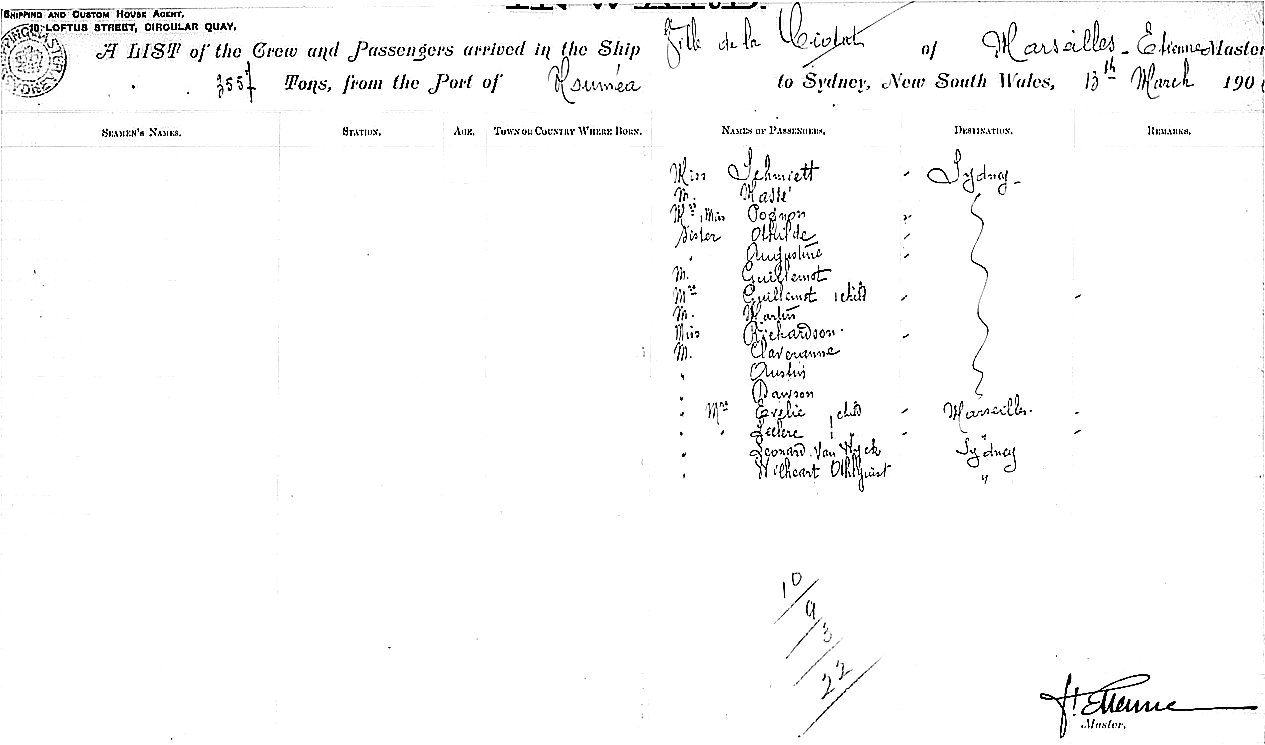 INWARD.
SHIPPING AND CUSTOM HOUSE AGENT,
10 LOFTUS STREET, CIRCULAR QUAY.
A LIST of the Crew and Passengers arrived in the Ship Ville de la Ciotat of Marseilles - Etienne Master
3557 Tons, from the Port of Nouméa to Sydney, New South Wales, 13th March 190
SEAMEN'S NAMES. STATION. AGE. TOWN OR COUNTRY WHERE BORN. NAMES OF PASSENGERS. DESTINATION. REMARKS.
Miss Schmidt " Sydney -
M. Massé
Mrs, Miss Pognon "
Sister Othilde
" Augustine
M. Guillemot
Mrs Guillemot 1 child
M. Martin
Miss Richardson
M. Claveranne
" Austin
" Dawson
" Mrs 1 child Marseilles.
" " Leclerc 1 " "
" Leonard Van Wyck Sydney
" "
10
9
3
22
Etienne
Master.